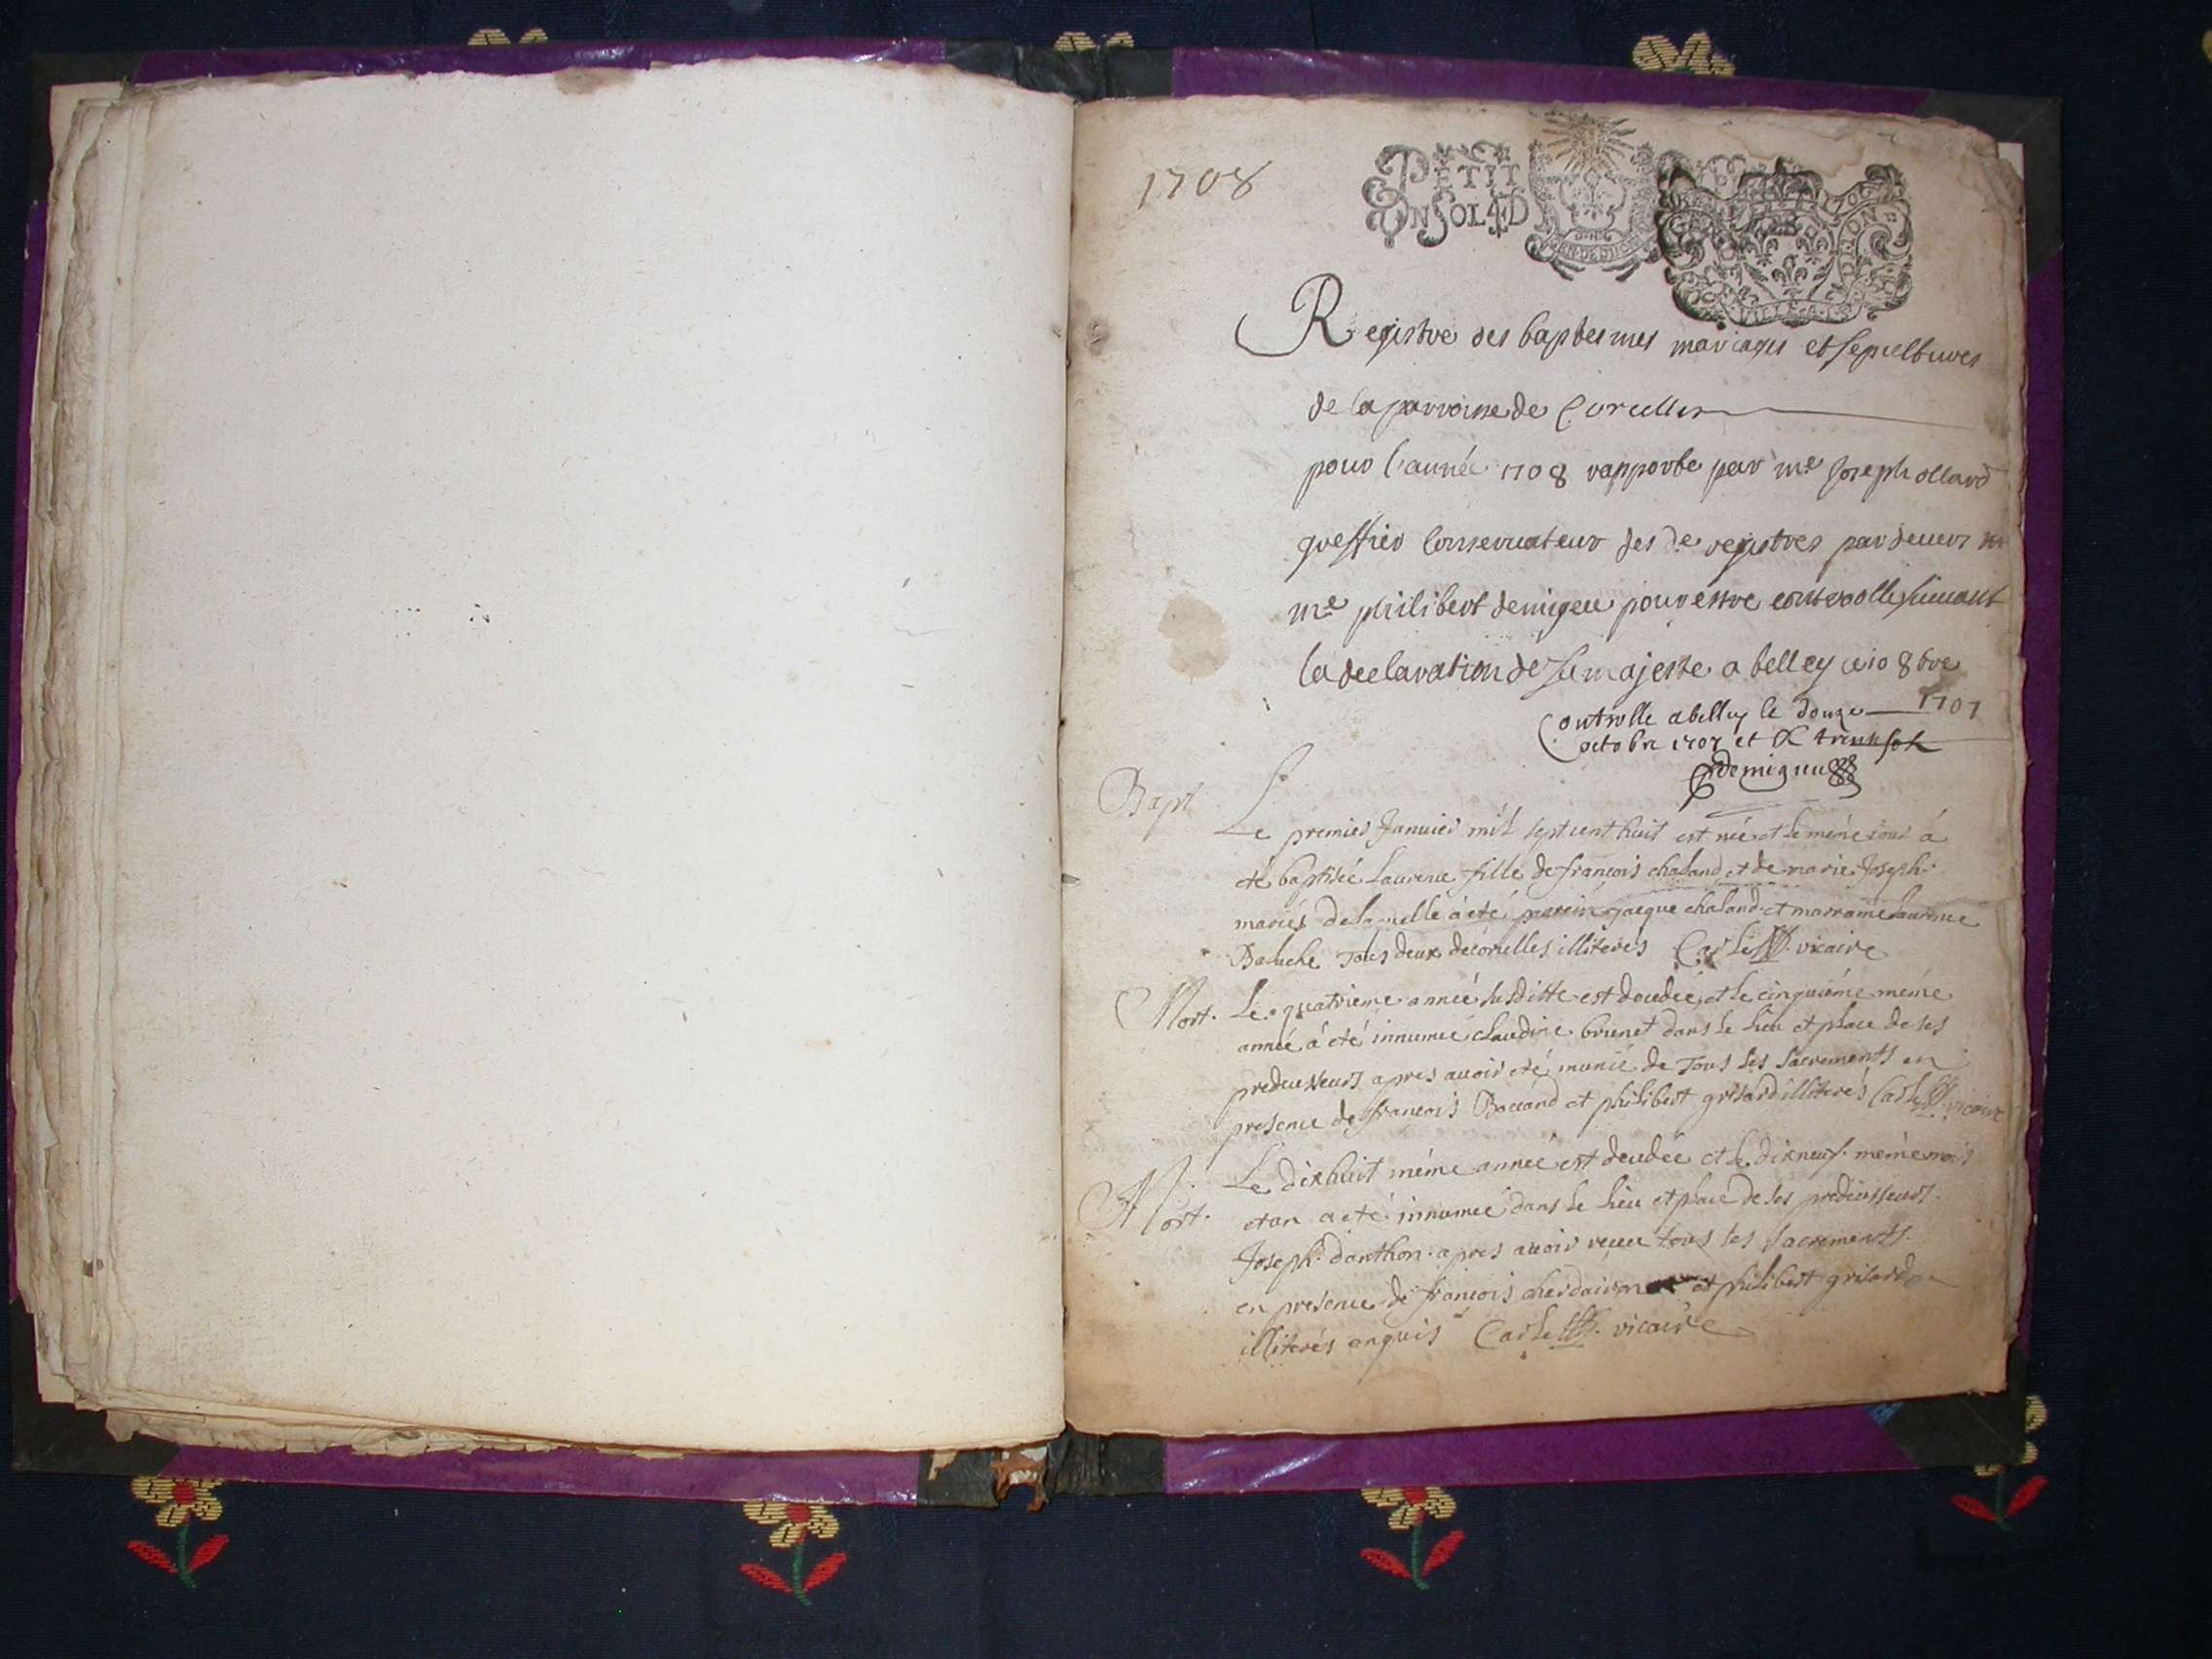 1708
PETIT
UN SOL 4 D
GEN. DE DIJON
Registre des baptesmes mariages et sepultures
de la parroisse de Corcelles
pour l'année 1708 rapporte par me Joseph ollard
greffier Conservateur des de registres pardevers
me philibert demigeu pour estre controolle suivant
la declaration de sa majeste a belley ce 10 8bre
1707
Controlle a belley le douze
octobre 1707 et R trente sols
demigeu
Bapt
Le premier Janvier mil sept cent huit est née et le méme jour á
eté baptisée Laurence fille de françois chaland et de marie Joseph
mariés de laquelle á eté parrin jacque chaland et marraine laurence
Baluche Tous deux de corcelles illiteres Carle vicaire
Mort.
Le quatriéme année susditte est decedée et le cinquiéme méme
année á eté innumée claudine brunet dans le lieu et place de ses
predecesseurs apres avoir eté munie de Tous les sacrements en
presence de françois Boccand et philibert grisard illiterés Carle vicaire
Mort.
Le dixhuit méme année est decedée et le dixneuf méme mois
et an a eté innumée dans le lieu et place de ses predecesseurs
Joseph danthon apres avoir receu tous les sacrements
en presence de françois et philibert grisard
illiterés enquis Carle vicaire